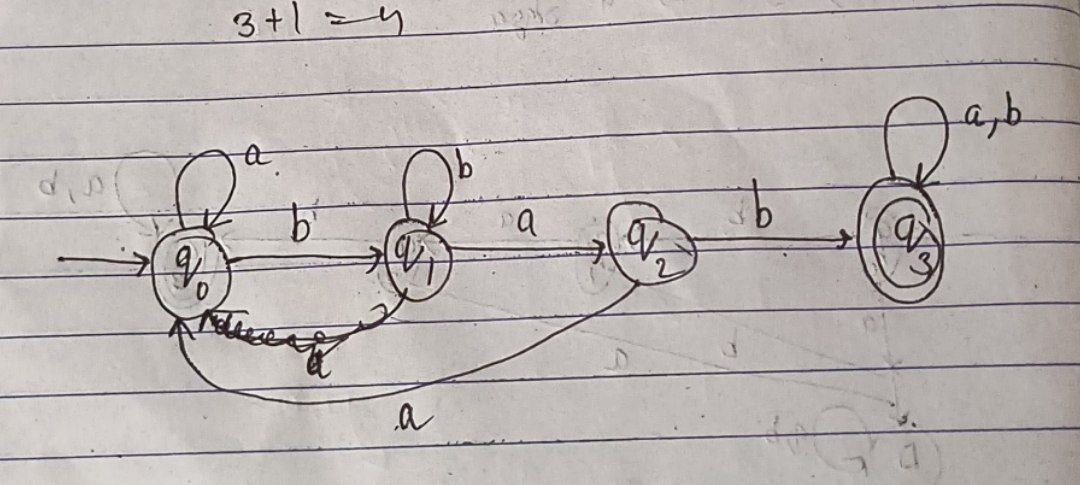 3+1 = 4
a, b
a
b
b
a
b
q0
q1
q2
q3
a